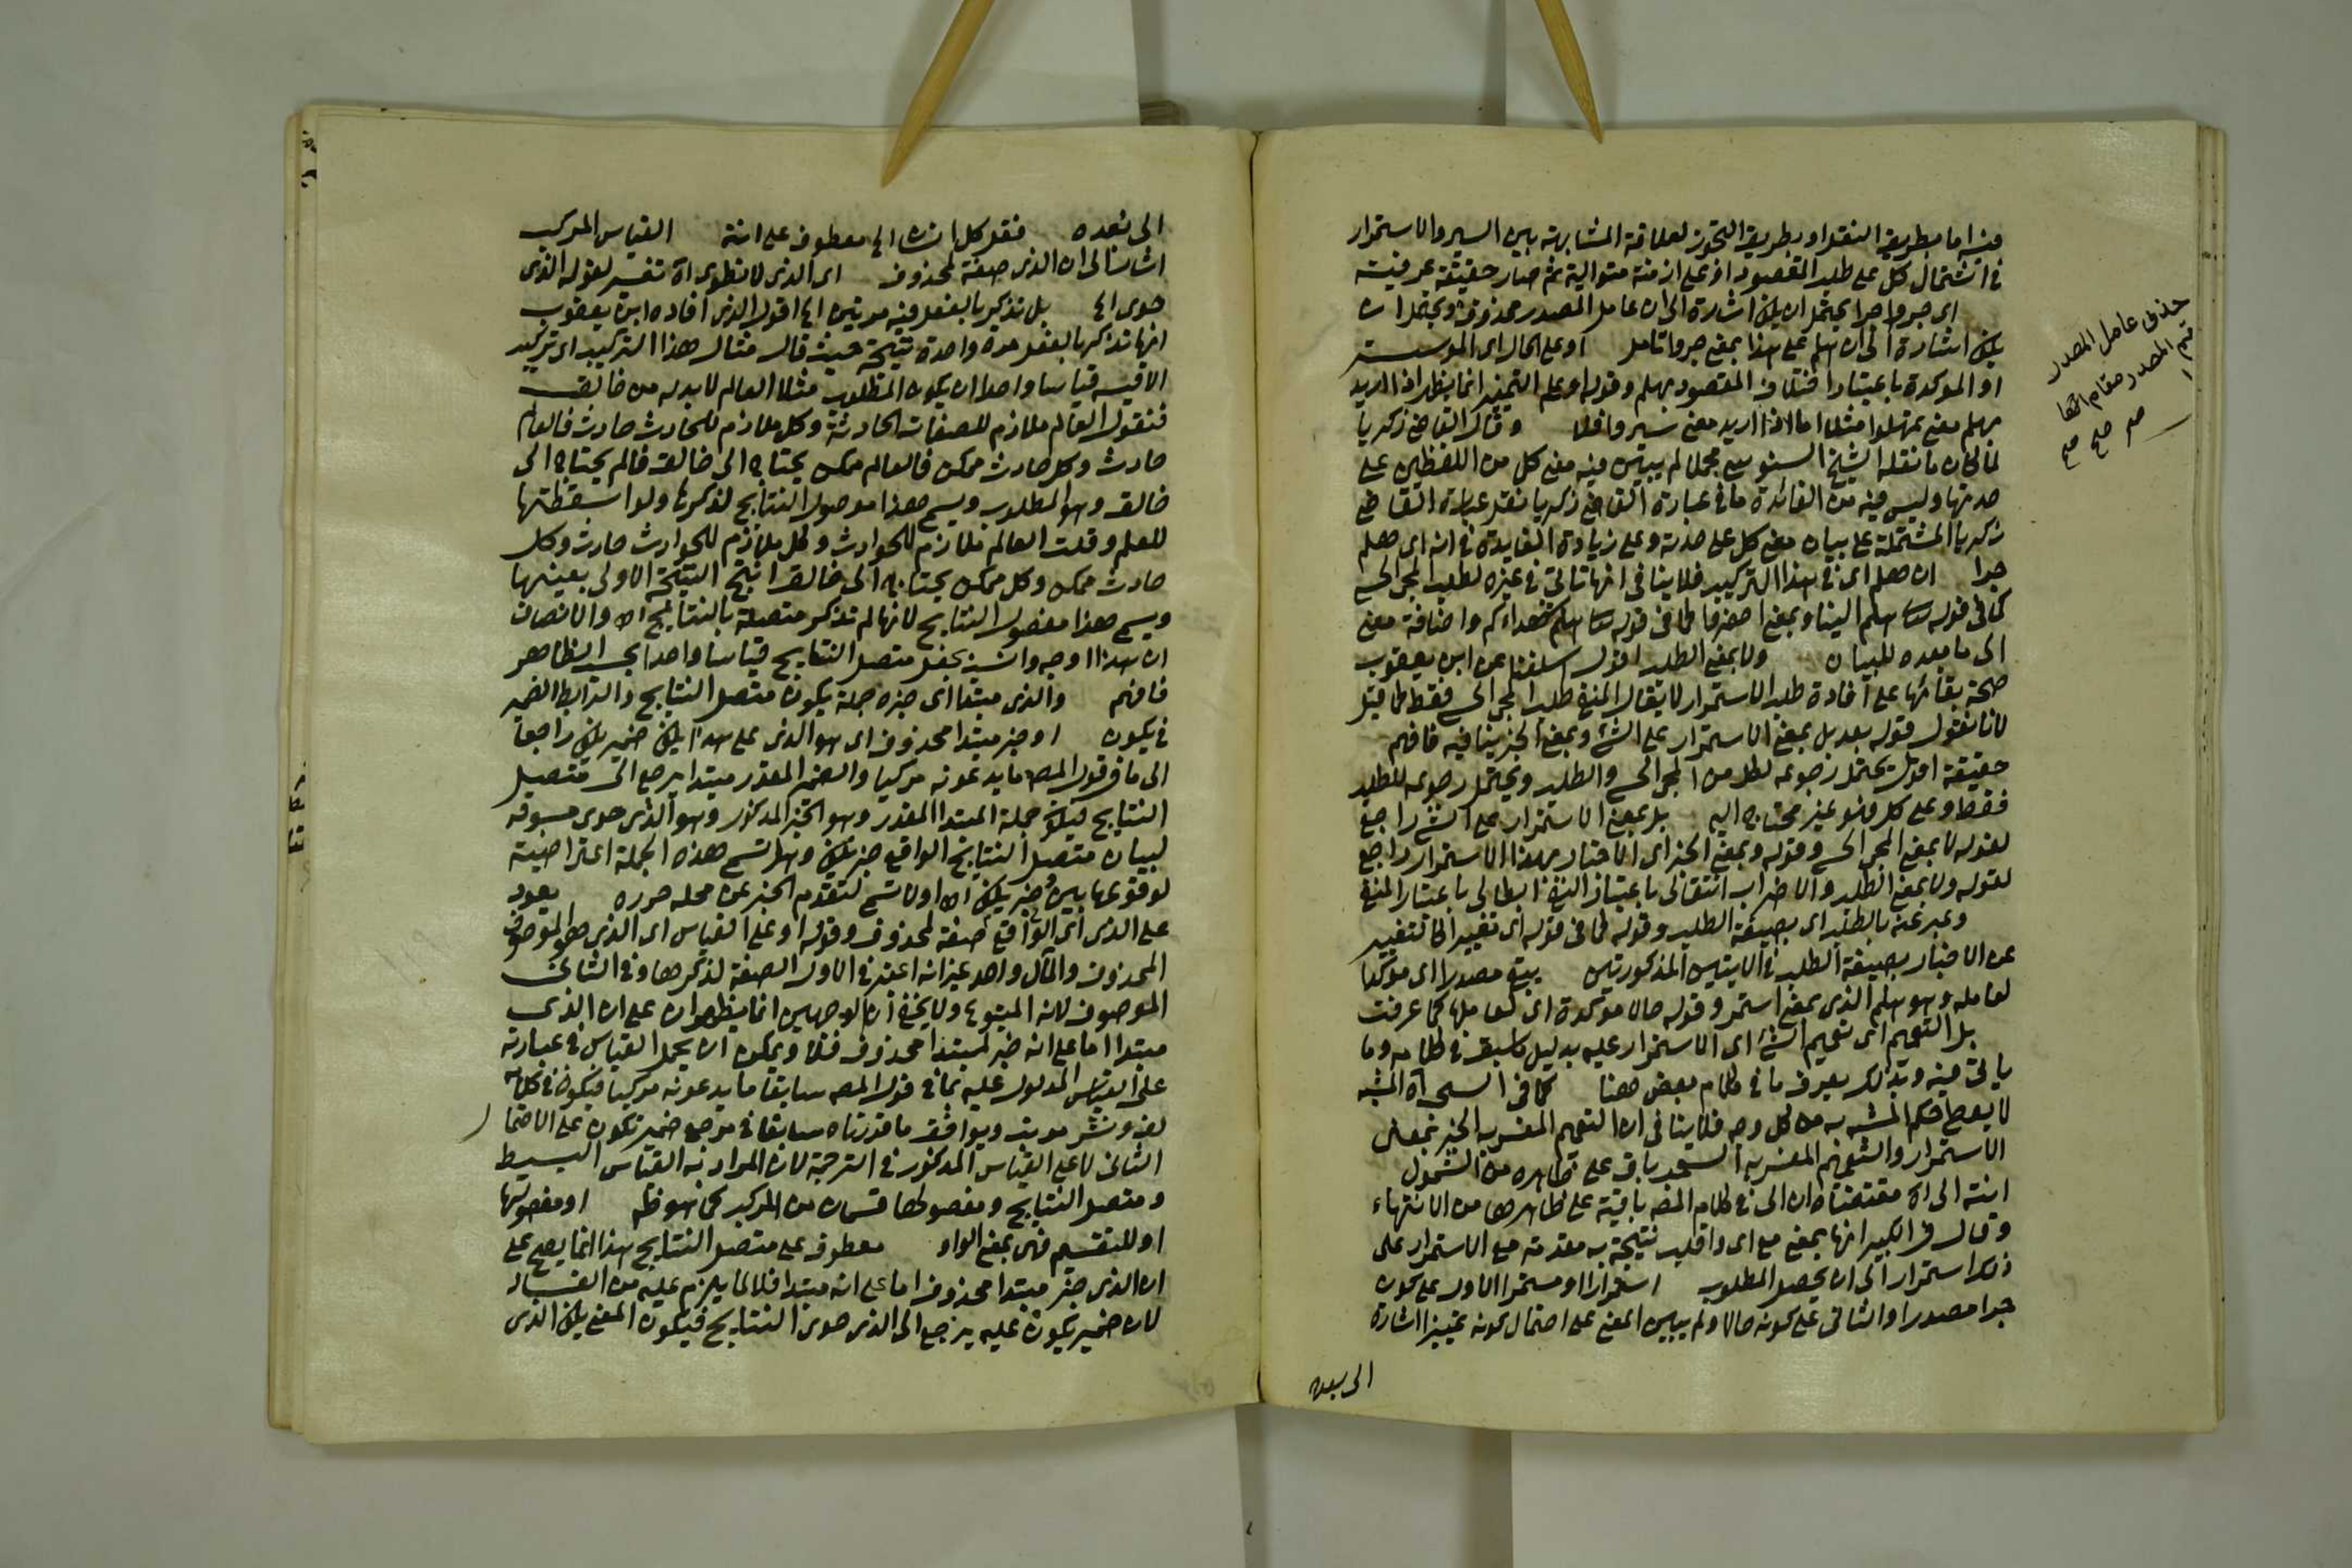 فيه اما بطريق النقل او بطريق التجوز لعلاقة المشابهة بين السير والاستمرار
في اشتمال كل على طلب المقصود اذ على ازمنة متوالية ثم صار حقيقة عرفية
اى جروا جرا يحتمل ان يكون اشارة الى ان عامل المصدر محذوف ويحتمل ان
يكون اشارة الى ان هلم على هذا بمعنى جروا تامل او على الحال اى المؤسسة
او المؤكدة باعتبار اختلاف المقصود بهلم وقوله او على التمييز انما يظهر اذا اريد
بهلم معنى تمهلوا مثلا اما اذا اريد معنى سيروا فلا وقال القاضى زكريا
لما كان ما نقله الشيخ السنوسى مجملا لم يبين فيه معنى كل من اللفظين على
حدتها وليس فيه من الفائدة ما فى عبارة القاضى زكريا نقل عبارة القاضى
زكريا المشتملة على بيان معنى كل على حدته وعلى زيادة الفايدة فى انه اى هلم
جرا ان هلم اى فى هذا التركيب فلا ينافى انها تاتى فى غيره لطلب المجئ الحسى
كما فى قوله هلم الينا وبمعنى احضر كما فى قوله هلم شهداءكم واضافة معنى
الى ما بعده للبيان ولا بمعنى الطلب اقول اسلفنا عن ابن يعقوب
صحة بقائها على افادة طلب الاستمرار لا يقال المنفى طلب المجئ الحسى فقط كما قيل
لانا نقول قوله بعد بل بمعنى الاستمرار على الشئ وبمعنى الخبر ينافيه فافهم
حقيقة اقول يحتمل رجوعه لكل من المجئ الحسى والطلب ويحتمل رجوعه للطلب
فقط وعلى كل فهو غير محتاج اليه بل بمعنى الاستمرار على الشئ راجع
لقوله لا بمعنى المجئ الحسى وقوله وبمعنى الخبر اى الاخبار بهذا الاستمرار راجع
لقوله ولا بمعنى الطلب والاضراب انتقالى باعتبار النفى ابطالى باعتبار المنفى
وعبر عنه بالطلب اى بصيغة الطلب وقوله كما فى قوله اى تغيير كالتغيير
عن الاخبار بصيغة الطلب فى الايتين المذكورتين يبقى مصدرا اى مؤكدا
لعامله وهو هلم الذى بمعنى استمر وقوله حالا مؤكدة اى لعاملها كما عرفت
بل التعميم اى تعميم الشئ اى الاستمرار عليه بدليل ما سبق فى كلامه وما
ياتى فيه وبذلك يعرف ما فى كلام بعض هنا كما فى السحر آه المشبه
لا يعطى حكم المشبه به من كل وجه فلا ينافى ان التعميم المفسر به الخبر بمعنى
الاستمرار والتعميم المفسر به السحر باق على ظاهره من الشمول
انته الى آه مقتضاه ان الى فى كلام المصـ باقية على ظاهرها من الانتهاء
وقال فى الكبير انها بمعنى مع اى واقلب نتيجة به مقدمة مع الاستمرار على
ذلك استمرار الى ان يحصل المطلوب استمرارا او مستمرا الاول على كون
جرا مصدرا والثانى على كونه حالا ولم يبين المعنى على احتمال كونه تمييزا اشارة
الى بعده
حذف عامل المصدر
المصدر مقام
صح صح صح
الى بعده فقل كل انسان الخ معطوف على انته القياس المركب
اشار الى ان الذى صفة لمحذوف اى الذى لا نطوى آه تفسير لقوله الذى
حوى الخ بل تذكير بالفعل فيه مرتين الخ اقول الذى افاده ابن يعقوب
انها تذكر بالفعل مرة واحدة نتيجة حيث قال مثال هذا التركيب اى تركيب
الاقيسة قياسا واحدا ان يكون المطلوب مثلا العالم لا بد له من خالق
فنقول العالم ملازم للصفات الحادثة وكل ملازم للحادث حادث فالعالم
حادث وكل حادث ممكن فالعالم ممكن يحتاج الى خالق فالعالم يحتاج الى
خالق وهو المطلوب ويسمى هذا موصول النتايج لذكرها ولو اسقطتها
للعلم وقلت العالم ملازم للحوادث وكل ملازم للحوادث حادث وكل
حادث ممكن وكل ممكن يحتاج الى خالق انتج النتيجة الاولى بعينها
ويسمى هذا مفصول النتايج لانها لم تذكر متصلة بالنتايج اه والانصاف
ان هذا اوجه وانسب بجعل متصل النتايج قياسا واحدا بحسب الظاهر
فافهم والذى مبتدا اى خبره جملة يكون متصل النتايج والرابط الضمير
فى يكون او خبر مبتدا محذوف اى هو الذى على هذا يكون ضمير يكن راجعا
الى ما فى قول المصـ ما يدعونه مركبا والضمير المقدر مبتدا يرجع الى متصل
النتايج فيكون جملة المبتدا المقدر وهو الخبر المذكور وهو الذى حوى مسوقة
لبيان متصل النتايج الواقع خبر يكن وهل تسمى هذه الجملة اعتراضية
لوقوعها بين وخبر يكن اه اولا تسمى لتقدم الخبر عن محله حرره يعود
على الذى اى الواقع صفة لمحذوف وقوله او على القياس اى الذى هو الموصوف
المحذوف والمآل واحد غير انه اعتبر فى الاول الصفة لذكرها وفى الثانى
الموصوف لانه المتبوع ولا يخفى ان الوجهين انما يظهران على ان الذى
مبتدا اما على انه خبر لمبتدا محذوف فلا ويمكن ان يحمل القياس فى عبارته
على القياس المدلول عليه بما فى قول المصـ سابقا ما يدعونه مركبا فيكون فى كلامه
لف ونشر مرتب ويوافق ما قررناه سابقا فى مرجع ضمير تكون على الاحتمال
الثانى لا على القياس المذكور فى الترجمة لان المراد به القياس البسيط
ومتصل النتايج ومفصولها قسمان من المركب كما هو ظ او مفصولها
او للتقسيم فهى بمعنى الواو معطوف على متصل النتايج هذا انما يصح على
ان الذى خبر مبتدا محذوف اما على انه مبتدا فلا لما يلزم عليه من الفساد
لان ضمير يكون عليه يرجع الى الذى حوى النتايج فيكون المعنى يكن الذى